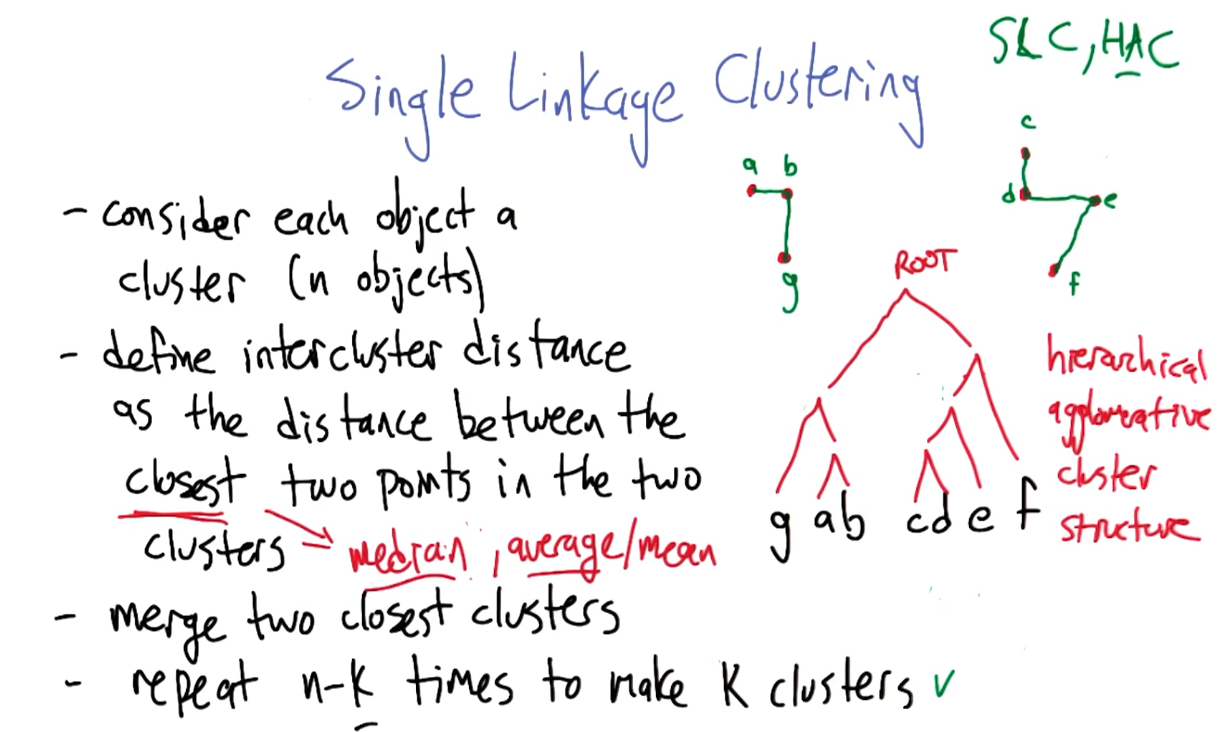 SLC, HAC
Single Linkage Clustering
- consider each object a
cluster (n objects)
- define intercluster distance
as the distance between the
closest two points in the two
clusters
median, average/mean
- merge two closest clusters
- repeat n-k times to make k clusters ✓
a b
g
c
d e
f
ROOT
g ab cd e f
hierarchical
agglomerative
cluster
structure